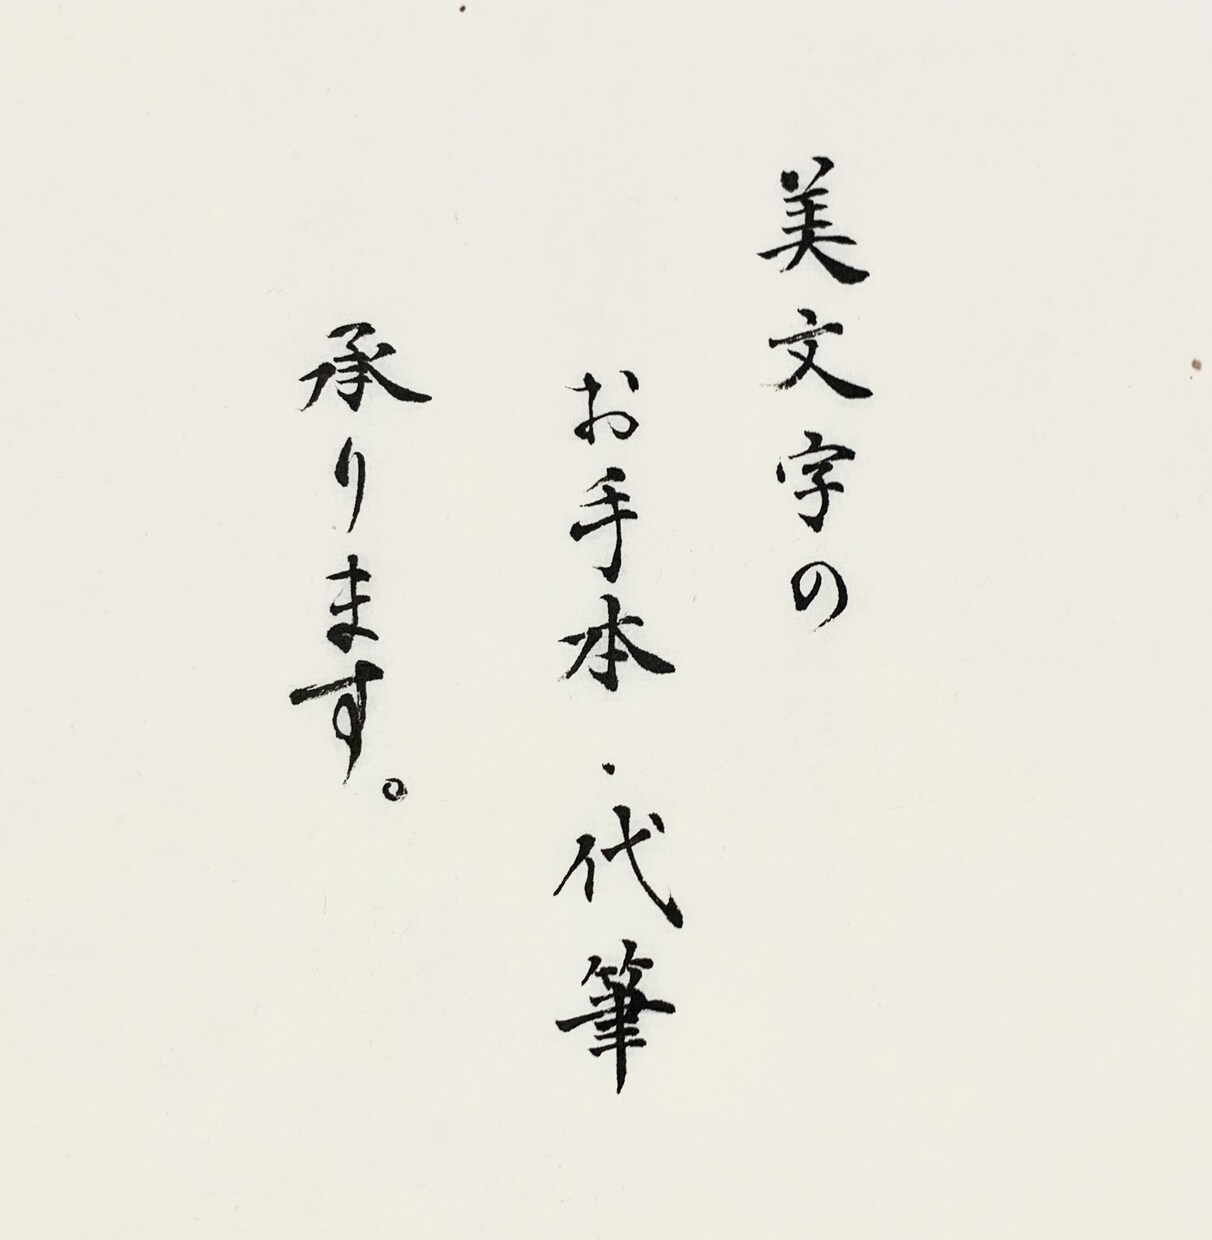 美文字の
お手本・代筆
承ります。